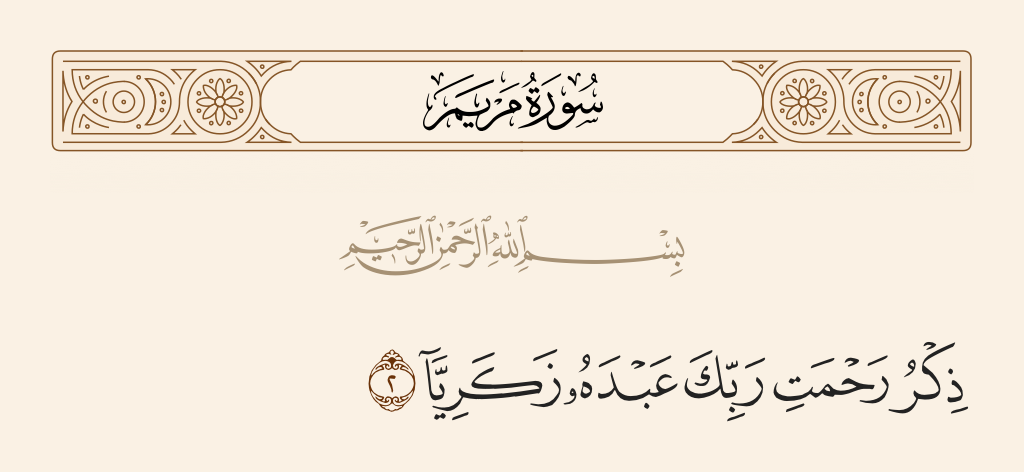 سُورَةُ مَرْيَمَ
بِسْمِ ٱللَّهِ ٱلرَّحْمَٰنِ ٱلرَّحِيمِ
ذِكْرُ رَحْمَتِ رَبِّكَ عَبْدَهُۥ زَكَرِيَّآ ٢